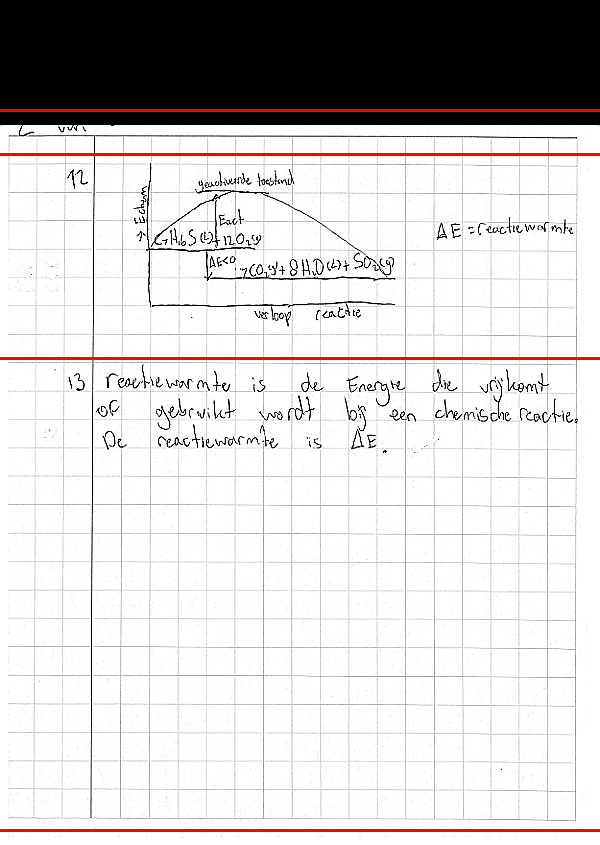 12
geactiveerde toestand
↑ Echem
Eact
C7H16S (l) + 12O2(g)
ΔE<0
7CO2(g) + 8H2O(l) + SO2(g)
ΔE = reactiewarmte
verloop reactie
13 reactiewarmte is de Energie die vrijkomt
of gebruikt wordt bij een chemische reactie.
De reactiewarmte is ΔE.